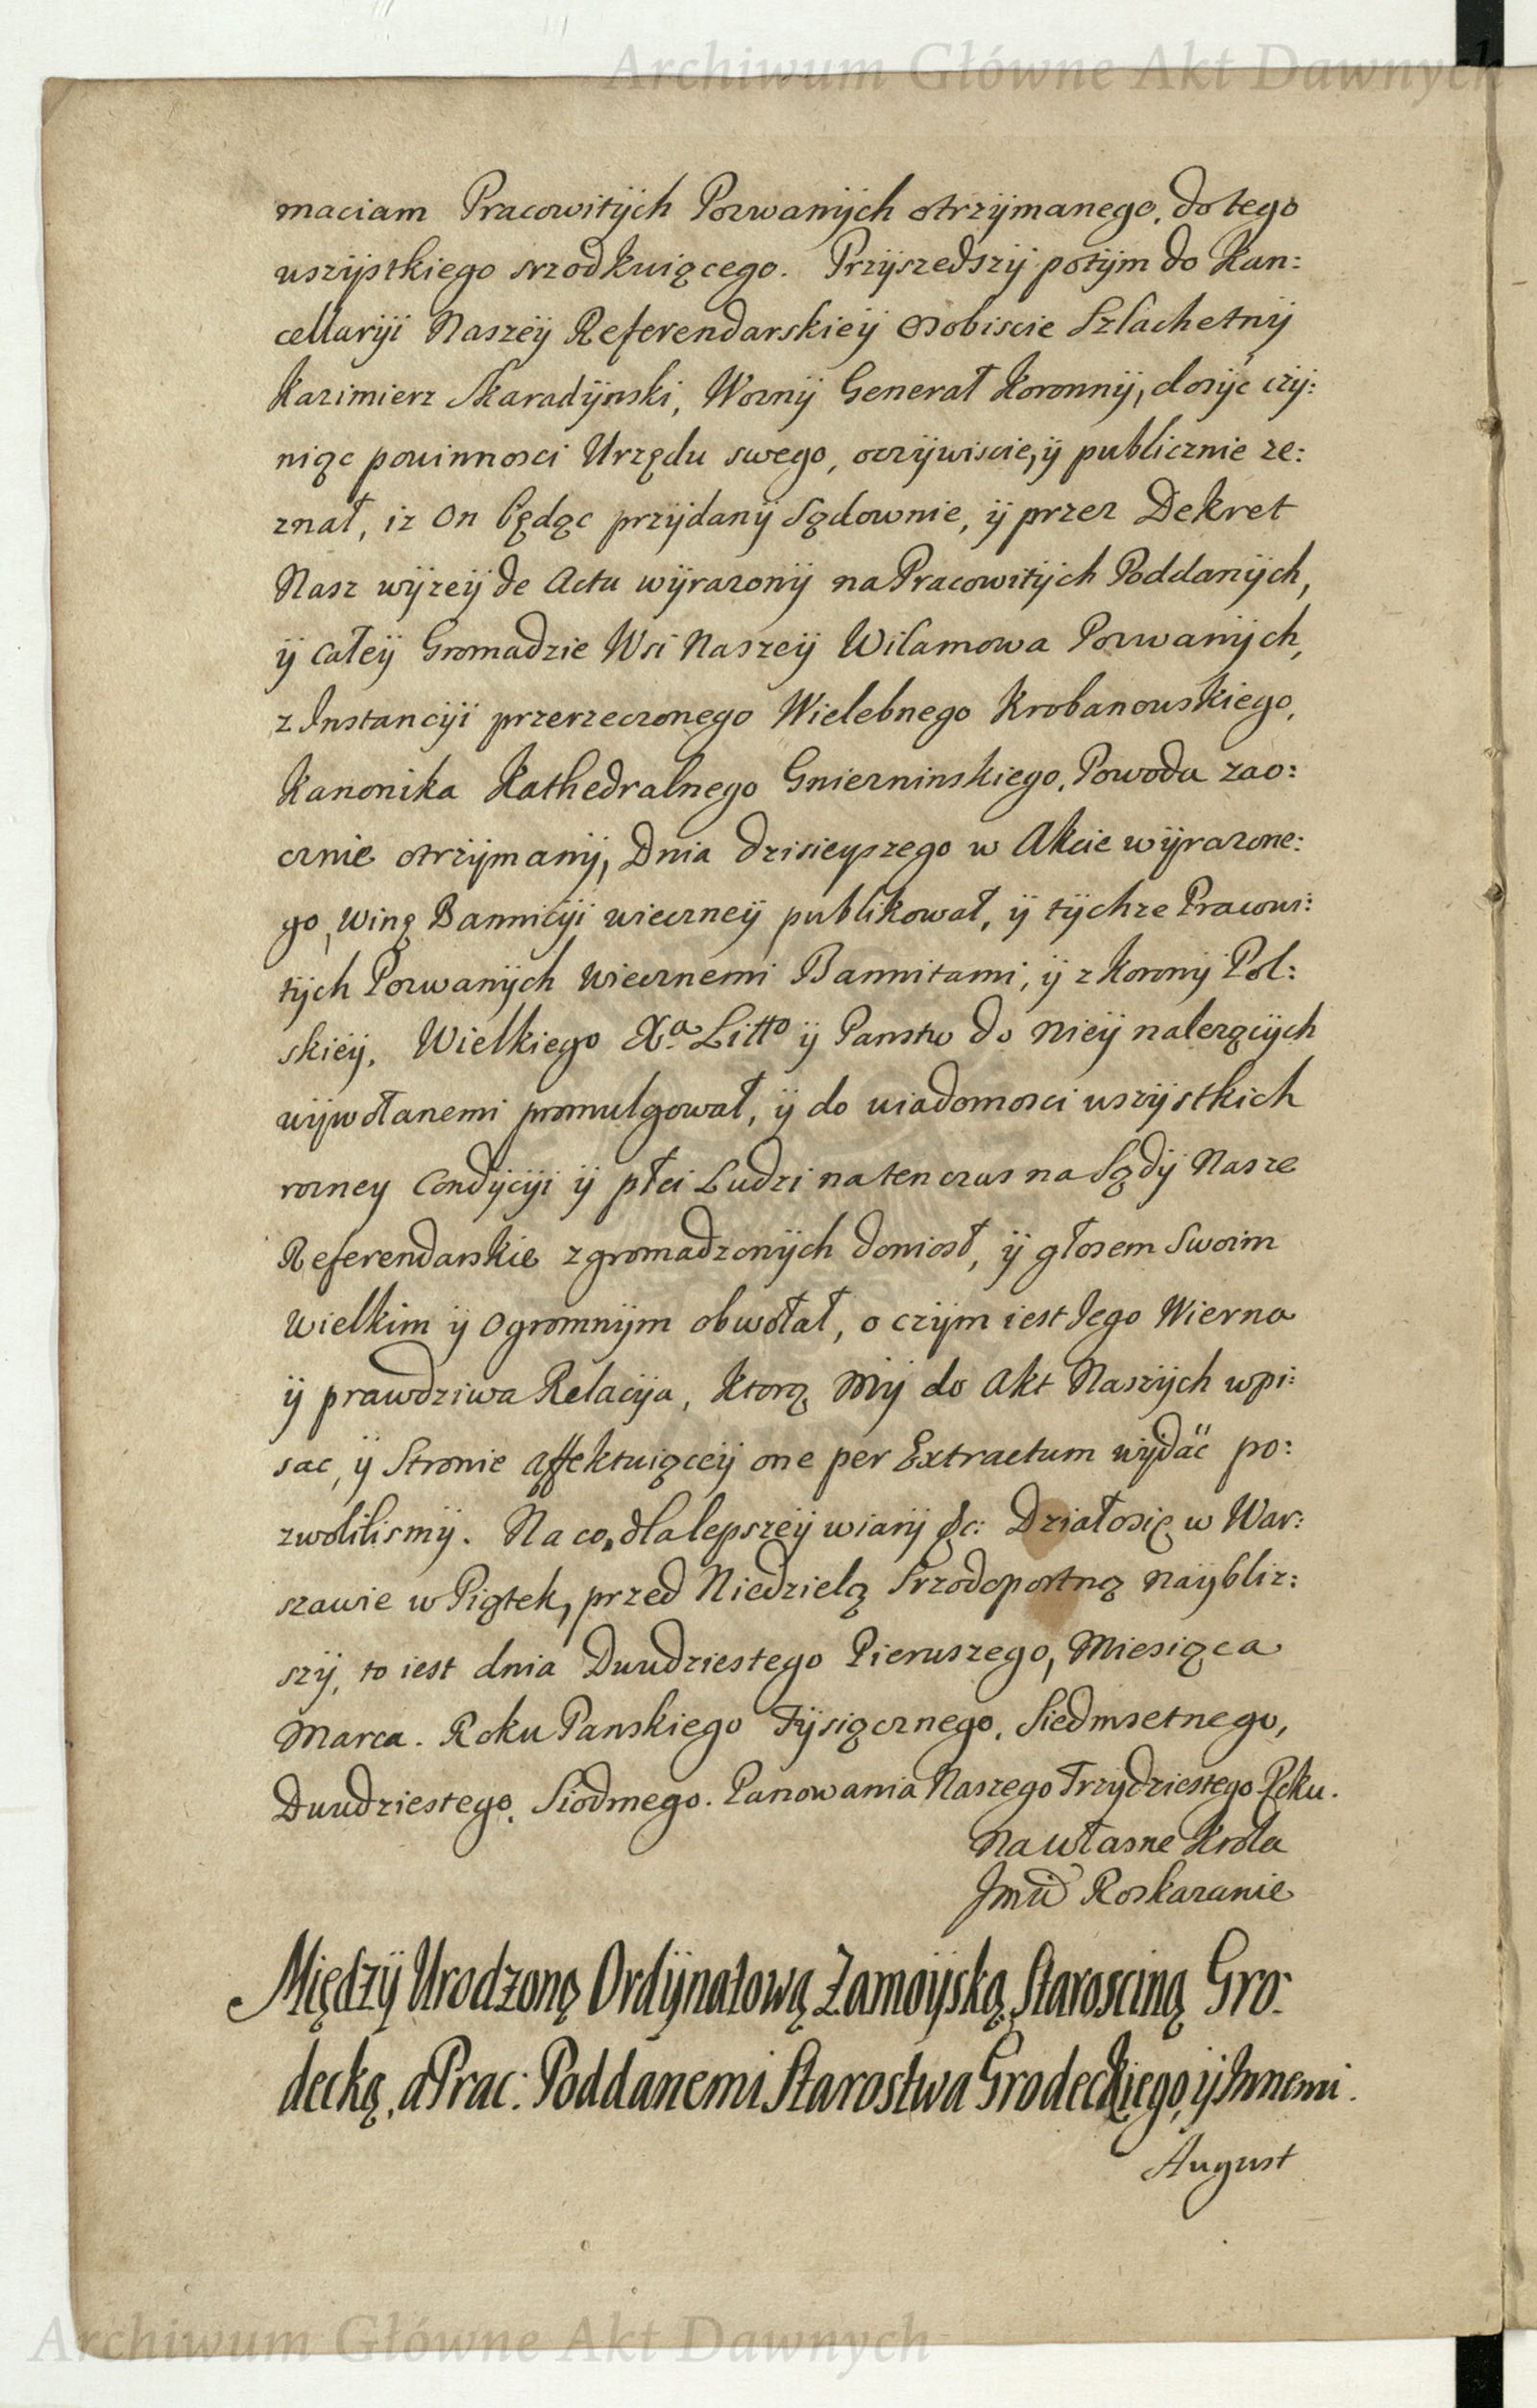 Archiwum Główne Akt Dawnych
maciam Pracowitÿch Pozwanÿch otrzÿmanego, do tego
wszÿstkiego srzodkuiącego. Przÿszedszÿ potÿm do Kan:
cellarÿi Naszeÿ Referendarskieÿ osobiscie Szlachetnÿ
Kazimierz Skaradÿnski, Woznÿ Generał Koronnÿ, dosÿć czÿ:
niąc powinnosci Urzędu swego, oczÿwiscie, ÿ publicznie ze:
znał, iz On będąc przÿdanÿ Sądownie, ÿ przez Dekret
Nasz wÿzeÿ de Actu wÿrazonÿ na Pracowitÿch Poddanÿch,
ÿ całeÿ Gromadzie Wsi Naszeÿ Wilamowa Pozwanÿch,
z Instancÿi przerzeczonego Wielebnego Krobanowskiego,
Kanonika Kathedralnego Gniezninskiego, Powoda zao:
cznie otrzÿmanÿ, Dnia dzisieyszego w Akcie wÿrazone:
go, winę Bannicÿi wieczneÿ publikował, ÿ tÿchze Pracowi:
tÿch Pozwanÿch wiecznemi Bannitami, ÿ z Koronÿ Pol:
skieÿ, Wielkiego Xa Litto ÿ Panstw do nieÿ nalezącÿch
wÿwołanemi promulgował, ÿ do wiadomosci wszÿstkich
rozney Condÿcÿi ÿ płci Ludzi na ten czas na Sądÿ Nasze
Referendarskie zgromadzonÿch doniosł, ÿ głosem Swoim
Wielkim ÿ Ogromnÿm obwołał, o czÿm iest Jego Wierna
ÿ prawdziwa Relacÿa, Ktorą Mÿ do Akt Naszÿch wpi:
sac, ÿ Stronie affektuiąceÿ one per Extractum wÿdać po:
zwolilismÿ. Na co, dla lepszeÿ wiarÿ &c: Działosię w War:
szawie w Piątek, przed Niedzielą Srzodopostną naÿbliz:
szÿ, to iest dnia Dwudziestego Pierwszego, Miesiąca
Marca. Roku Panskiego Tÿsiącznego, Siedmsetnego,
Dwudziestego, Siodmego. Panowania Naszego Trzydziestego Roku.
Na własne Krola
Jmci Roskazanie
Międzÿ Urodzoną Ordÿnatową Zamoÿską, Starosciną Gro:
decką, a Prac: Poddanemi Starostwa Grodeckiego, ÿ Innemi.
August
Archiwum Główne Akt Dawnych